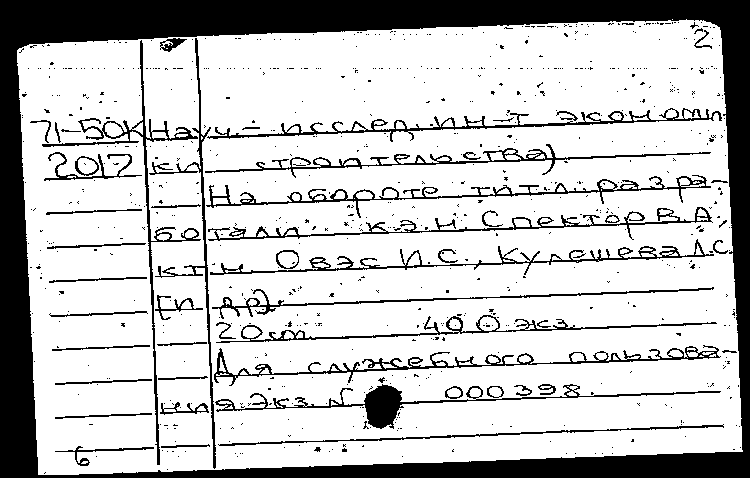 2
71-50К Науч.- исслед. ин-т экономи
2017 ки строительства)
На обороте тит. л. разра-
ботали: к.э.н. Спектор В.А.,
к.т.н. Овэс И.С., Кулешева Л.С.
[и др].
20 cm. 400 экз.
Для служебного пользова-
ния. Экз. № 000398.
6